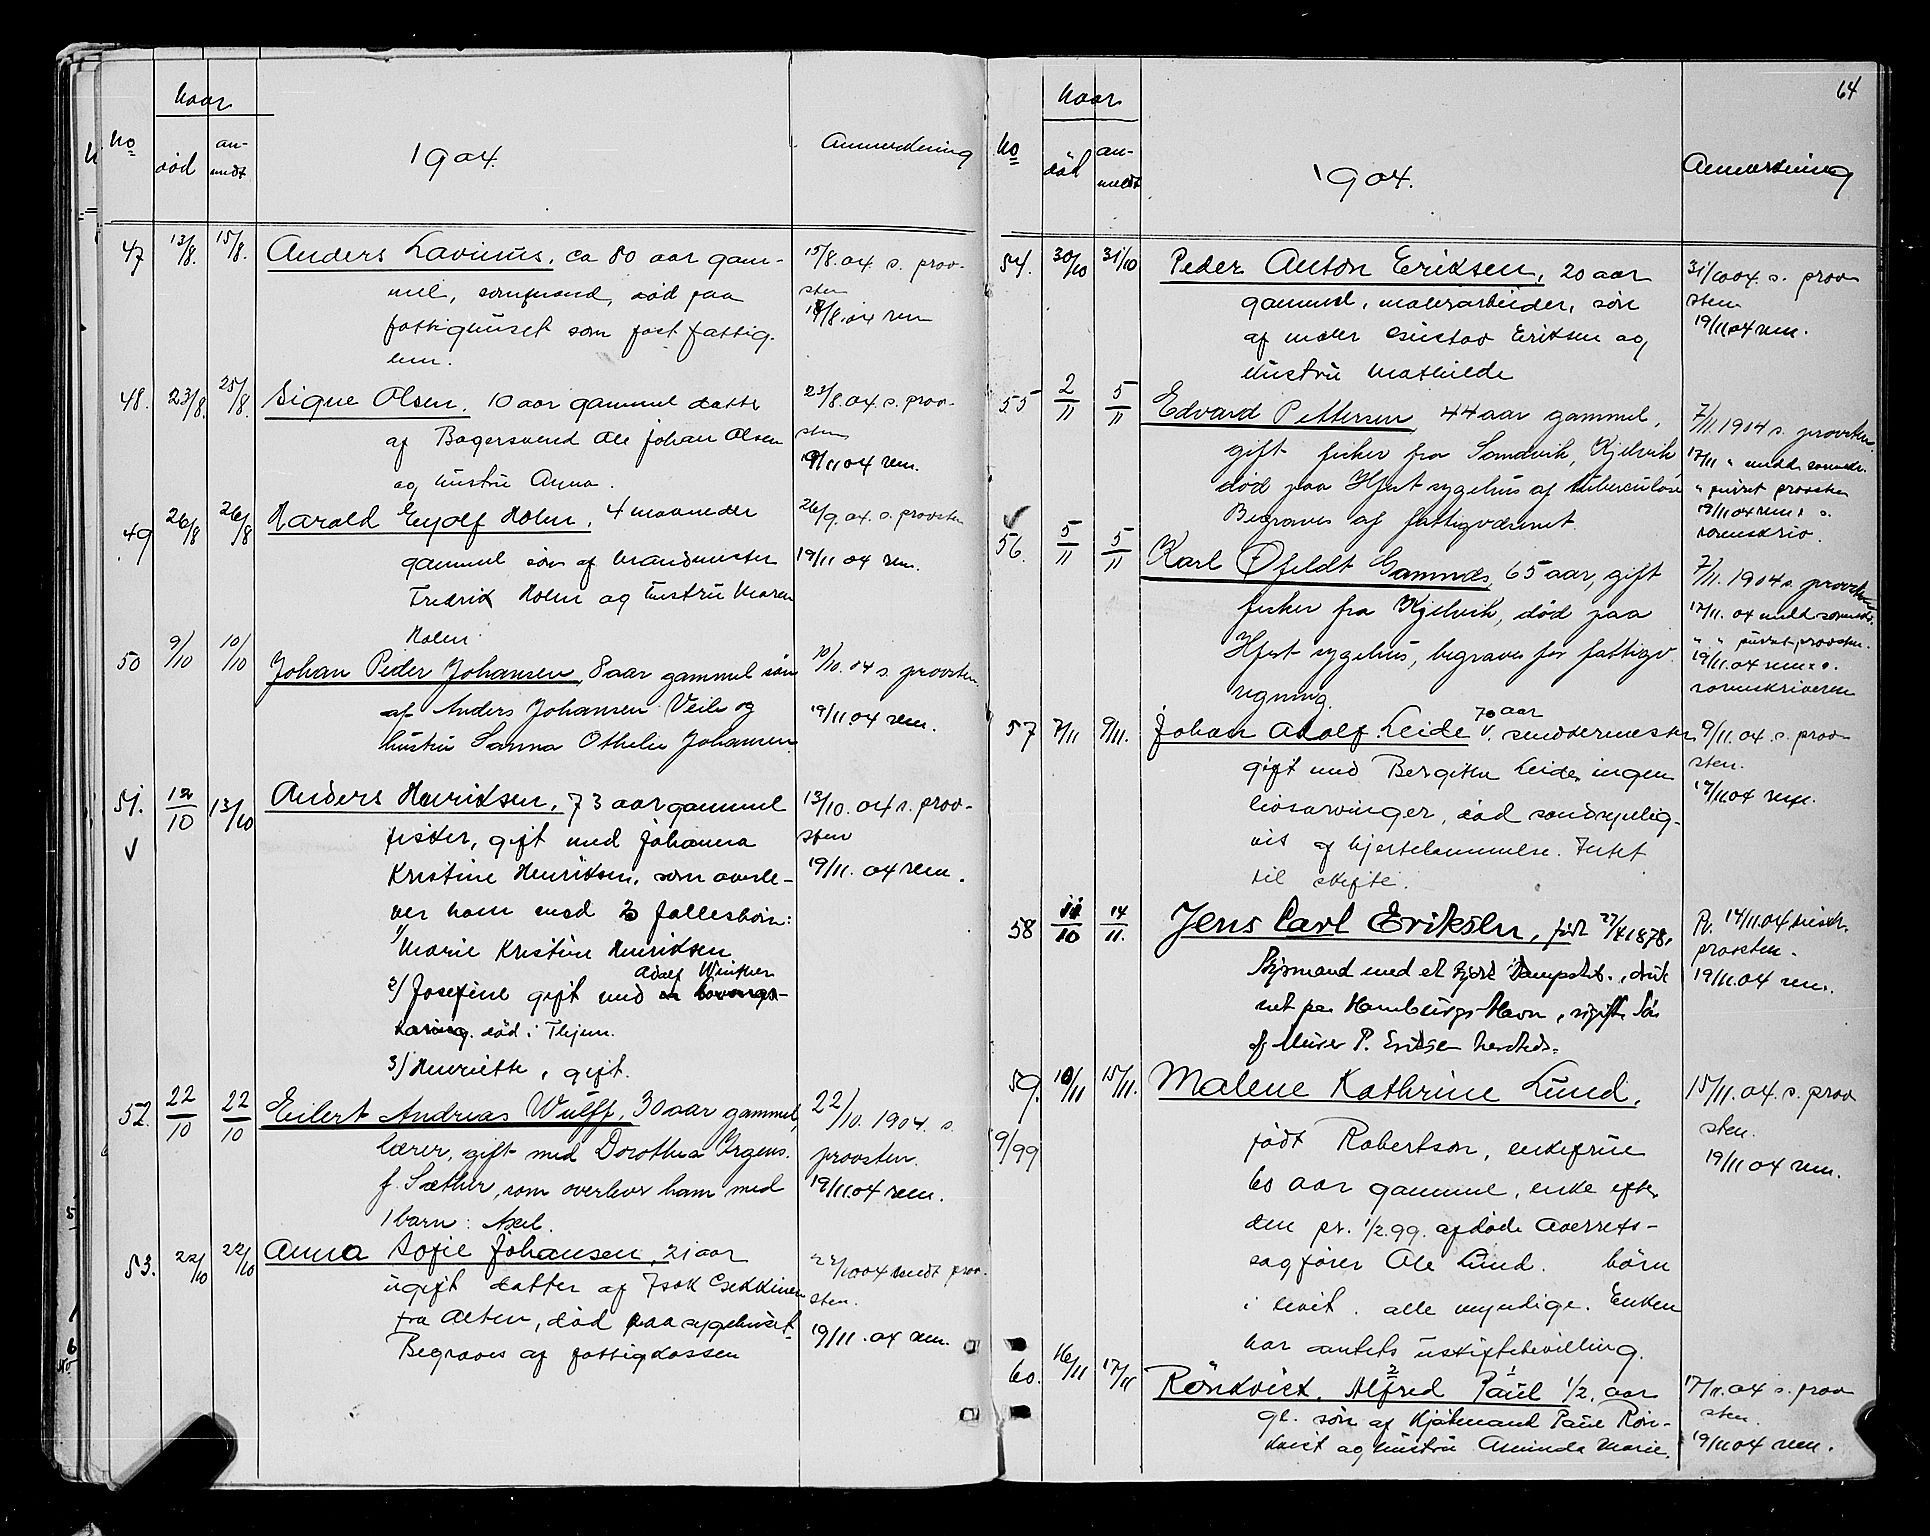 No
hvor
død
an-
meldt
1904.
Anmerkning
47
13/8.
15/8.
Anders Lavinius, ca 80 aar gam-
mel, , død paa
fattighuset som fast fattig-
lem.
15/8.04. s. prov-
sten
19/8.04 rem
48.
23/8.
25/8.
Signe Olsen. 10 aar gammel datter
af Bagersvend Ole Johan Olsen
og hustru Anna.
23/8.04. s. prov-
sten
19/11 04 rem.
49
26/8
26/8
Harald Eyolf Holm, 4 maaneder
gammel søn af brandmester
Fredrik Holm og hustru Maren
Holm.
26/9.04. s. provsten
19/11 04 rem.
50
9/10
10/10
Johan Peder Johansen, 8 aar gammel søn
af Anders Johansen Veile og
hustru Sanna Othelie Johansen.
10/10.04 s. provsten.
19/11.04 rem.
51.
12/10
13/10
Anders Henriksen, 73 aar gammel
fisker, gift med Johanna
Kristine Henriksen, som overle-
ver ham med 3 fællesbørn:
1/ Marie Kristine Henriksen
Adolf Winther
2/ Josefine gift med en
død i Thjem.
3/ Henriette, gift.
13/10.04 s. prov-
sten
19/11.04 rem.
52.
22/10
22/10
Eilert Andreas Wulff, 30 aar gammel,
lærer, gift med Dorothea Irgens.
f. Sæther, som overlever ham med
1 barn: Axel.
22/10.1904. s.
provsten.
19/11.04 rem.
53.
22/10
22/10
Anna Sofie Johansen, 21 aar
ugift datter af Isak
fra Alten, død paa sygehuset.
Begraves af fattigkassen
22/10 04 meldt prov-
sten.
19/11.04 rem.
64
No
hvor
død
an-
meldt
1904.
Anmerkning
54.
30/10
31/10
Peder Anton Eriksen, 20 aar
gammel, malerarbeider, søn
af maler Gustav Eriksen og
hustru Mathilde
31/10 04. s. prov-
sten
19/11 04 rem.
55
2/11
5/11
Edvard Pettersen, 44 aar gammel,
gift fisker fra Sandvik, Kjelvik
død paa Hfest sygehus af tuberculose
Begraves af fattigvæsenet.
7/11.1904 s. provsten.
17/11 " meldt
" purret provsten
19/11 04 rem. s.
sorenskriv.
56.
5/11
5/11
Karl Øfeldt Gamnæs, 65 aar, gift
fisker fra Kjelvik, død paa
Hfest sygehus, begraves for fattigv.
regning.
7/11.1904 s. provsten
17/11.04 meldt
" " purret provsten.
19/11.04 rem. s.
sorenskriveren
57
7/11
9/11.
70 aar
Johan Adolf Leide, v. snedkermester
gift med Bergithe Leide, ingen
livsarvinger, død sandsynlig-
vis af hjertelammelse. Intet
til skifte.
9/11.04. s. prov-
sten.
19/11.04 rem.
58
11/10
14/11.
Jens Carl Eriksen, født 27/4 1878,
Styrmand med et tysk Dampskib, druk
net paa Hamburgs Havn, ugift Søn
af Murer P. Eriksen hersteds.
Pr. 14/11.04
provsten.
19/11.04 rem.
59.
9/99
10/11
15/11.
Malene Kathrine Lund,
født Robertson, enkefrue
60 aar gammel, enke efter
den pr. 1/2.99. afdøde overrets-
sagfører Ole Lund. børn
i live. alle myndige. Enken
har amtets uskiftebevilling.
15/11.04. s. prov
sten.
19/11 04 rem.
60.
16/11
17/11
2 1
Rönkvist, Alfred Paul 1/2 aar
gl. søn af Kjøbmand Paul Rön-
kvist og hustru Aminda Marie.
17/11.04 s. prov
sten.
19/11 04 rem.